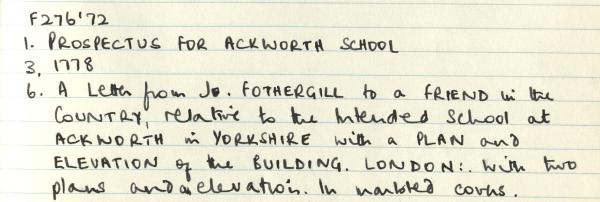 F276'72
1. PROSPECTUS FOR ACKWORTH SCHOOL
3. 1778
6. A Letter from Jo. FOTHERGILL to a FRIEND in the
COUNTRY, relative to the Intended School at
ACKWORTH in YORKSHIRE with a PLAN and
ELEVATION of the BUILDING. LONDON:. With two
plans and a elevation. In marbled covers.